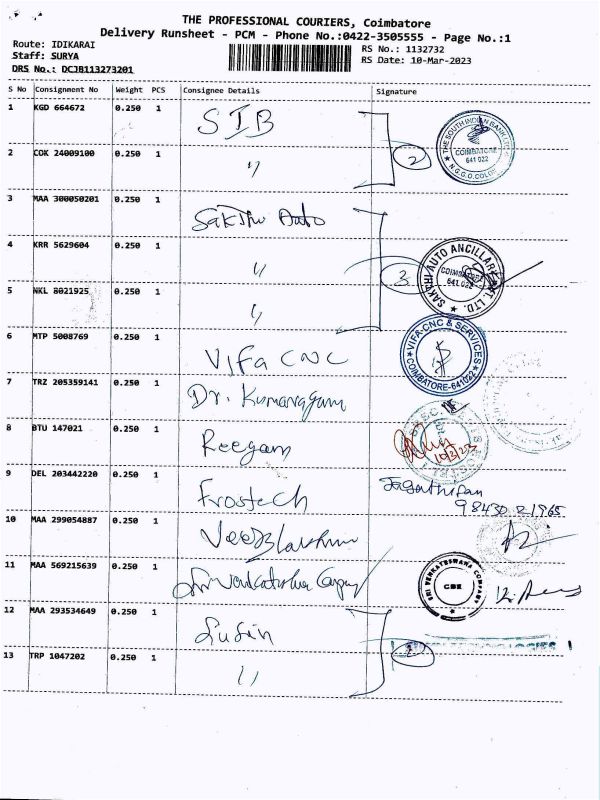 THE PROFESSIONAL COURIERS, Coimbatore
Delivery Runsheet - PCM - Phone No.:0422-3505555 - Page No.:1
Route: IDIKARAI
Staff: SURYA
DRS No.: DCJB113273201
RS No.: 1132732
RS Date: 10-Mar-2023
S No Consignment No Weight PCS Consignee Details Signature
1 KGD 664672 0.250 1 SIB
THE SOUTH INDIAN BANK COIMBATORE 641 022 N.G.G.O.COLONY
2 COK 24009100 0.250 1 〃 2
3 MAA 300050201 0.250 1 Sakthi Auto
4 KRR 5629604 0.250 1 〃
3 SAKTHI AUTO ANCILLARY PVT. LTD. COIMBATORE 641 022
5 NKL 8021925 0.250 1 〃
6 MTP 5008769 0.250 1 Vifa CNC
VIFA-CNC & SERVICES COIMBATORE-641022
7 TRZ 205359141 0.250 1 Dr. Kumaragam
8 BTU 147021 0.250 1 Reegam
10/3/23
9 DEL 203442220 0.250 1 Frostech
98430 21965
10 MAA 299054887 0.250 1
11 MAA 569215639 0.250 1
SRI VENKATESWARA COMPANY CBE
12 MAA 293534649 0.250 1 Lusin
13 TRP 1047202 0.250 1 〃